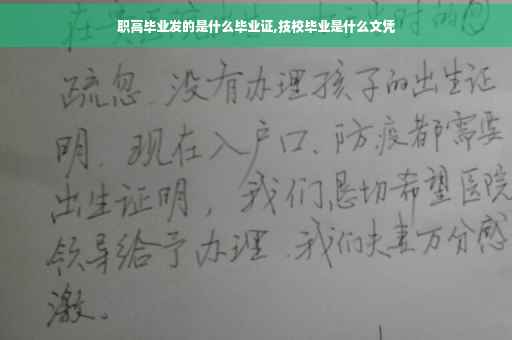 职高毕业发的是什么毕业证,技校毕业是什么文凭
疏忽、没有办理孩子的出生证
明、现在入户口、防疫都需要
出生证明，我们恳切希望医院
领导给予办理、我们夫妻万分感
激。